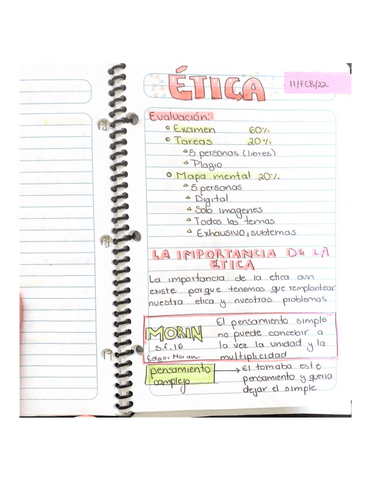 ÉTICA
11/FEB/22
Evaluación:
Examen 60%
Tareas 20%
5 personas (libres)
Plagio
Mapa mental 20%
5 personas
Digital
Solo imagenes
Todos los temas
Exhausivo, subtemas
LA IMPORTANCIA DE LA
ETICA
La importancia de la etica aun
existe porque tenemos que replantear
nuestra etica y nuestros problemas
MORIN
s.f. 16
Edgar Morin
El pensamiento simple
no puede concebir a
la vez la unidad y la
multiplicidad
pensamiento
complejo
el tomaba este
pensamiento y queria
dejar el simple